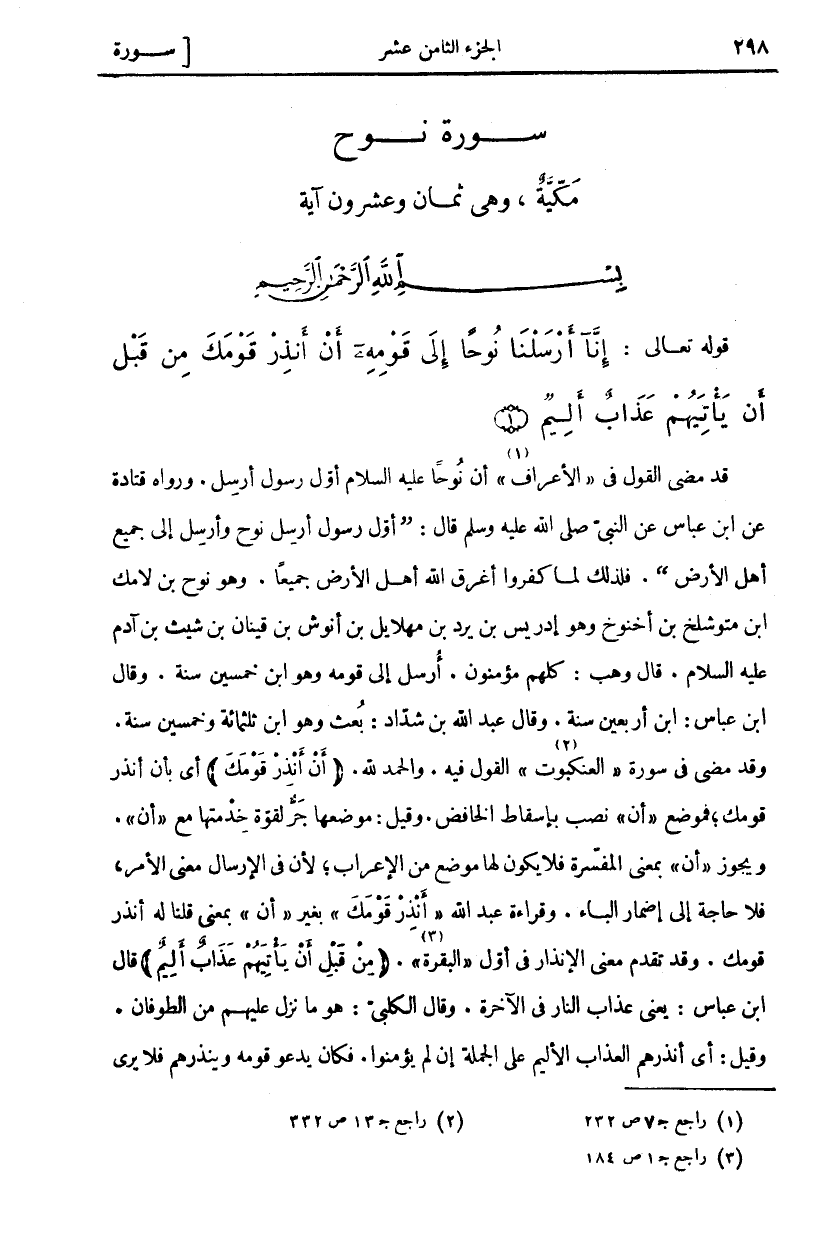 ٢٩٨ الجزء الثامن عشر [ ســـورة
ســـورة نـــوح
مَكِّيَّةٌ ، وهى ثمـان وعشرون آية
بِسْمِ ٱللَّهِ ٱلرَّحْمَٰنِ ٱلرَّحِيمِ
قوله تعـالى : إِنَّآ أَرْسَلْنَا نُوحًا إِلَىٰ قَوْمِهِۦٓ أَنْ أَنذِرْ قَوْمَكَ مِن قَبْلِ
أَن يَأْتِيَهُمْ عَذَابٌ أَلِيمٌ ﴿١﴾
قد مضى القول فى « الأعراف(١) » أن نُوحًا عليه السلام أوّل رسول أرسِل . ورواه قتادة
عن ابن عباس عن النبىّ صلى الله عليه وسلم قال : ” أوّل رسول أرسِل نوح وأرسِل إلى جميع
أهل الأرض “ . فلذلك لمـا كفروا أغرق الله أهـل الأرض جميعًا . وهو نوح بن لامك
ابن متوشلخ بن أخنوخ وهو إدريس بن يرد بن مهلايل بن أنوش بن قينان بن شيث بن آدم
عليه السلام . قال وهب : كلهم مؤمنون . أُرسل إلى قومه وهو ابن خمسين سنة . وقال
ابن عباس : ابن أربعين سنة . وقال عبد الله بن شدّاد : بُعث وهو ابن ثلثمائة وخمسين سنة .
وقد مضى فى سورة « العنكبوت(٢) » القول فيه . والحمد لله . ﴿ أَنْ أَنْذِرْ قَوْمَكَ ﴾ أى بأن أنذر
قومك ؛ فموضع «أن» نصب بإسقاط الخافض . وقيل : موضعها جَرٌّ لقوّة خِدْمتها مع «أن» .
ويجوز «أن» بمعنى المفسّرة فلا يكون لها موضع من الإعراب ؛ لأن فى الإرسال معنى الأمر ،
فلا حاجة إلى إضمار البـاء . وقراءة عبد الله « أَنْذِرْ قَوْمَكَ » بغير « أن » بمعنى قلنا له أنذر
قومك . وقد تقدم معنى الإنذار فى أوّل «البقرة(٣)» . ﴿ مِنْ قَبْلِ أَنْ يَأْتِيَهُمْ عَذَابٌ أَلِيمٌ ﴾ قال
ابن عباس : يعنى عذاب النار فى الآخرة . وقال الكلبىّ : هو ما نزل عليهـم من الطوفان .
وقيل : أى أنذرهم العذاب الأليم على الجملة إن لم يؤمنوا . فكان يدعو قومه وينذرهم فلا يرى
(١) راجع جـ ٧ ص ٢٣٢ (٢) راجع جـ ١٣ ص ٣٣٢
(٣) راجع جـ ١ ص ١٨٤